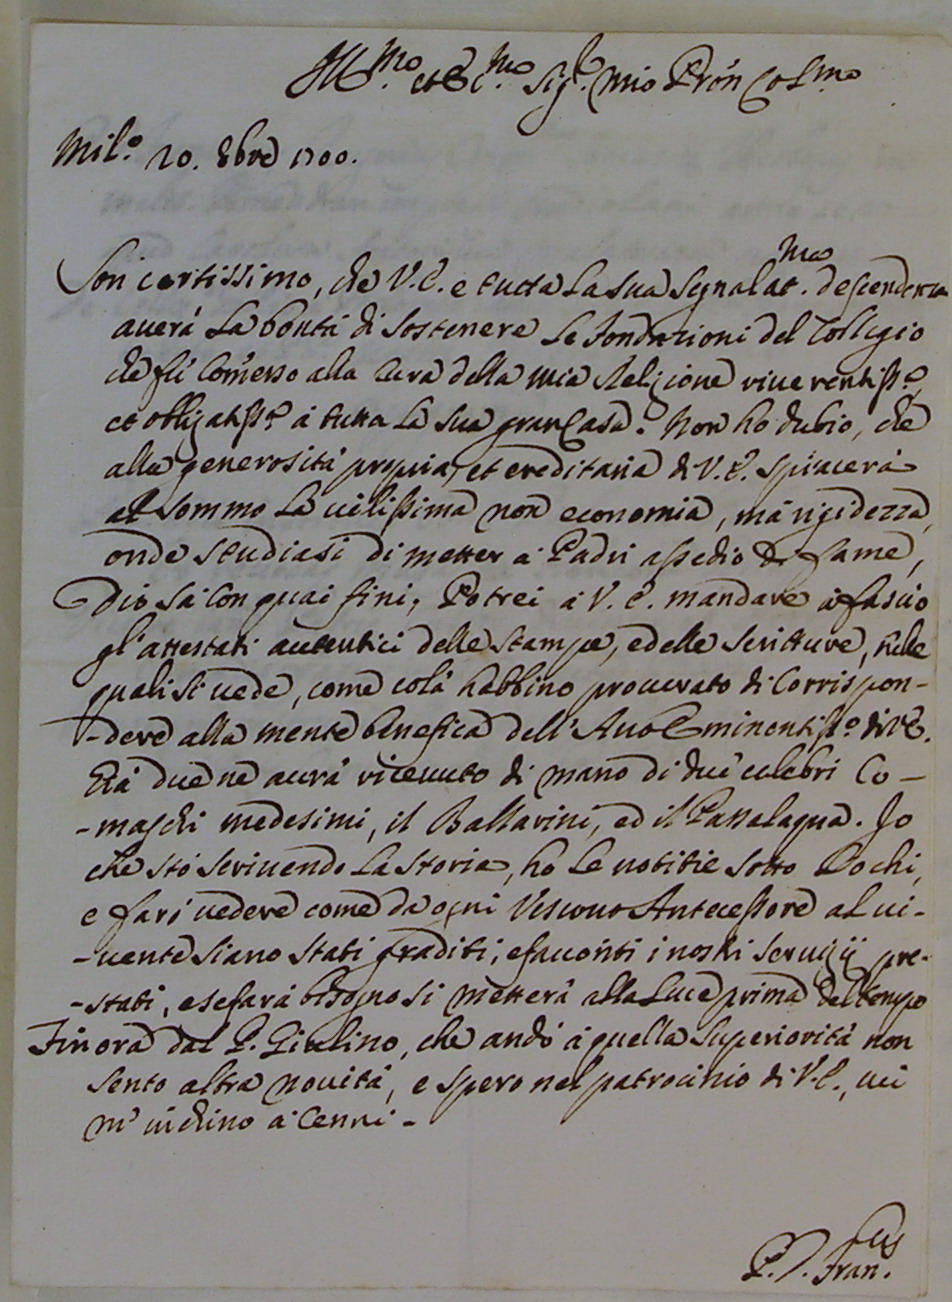 Ill.mo et Ecc.mo Sig.r mio Prõn Col.mo
Mil.o 20. 8bre 1700.
Son certissimo, che V.E. e tutta la sua segnalat.ma descendenza
auerà la bontà di sostenere le fondazioni del Collegio
che fù com̃esso alla cura della mia Religione riuerentiss.a
et obligatiss.a à tutta la sua gran Casa. Non ho dubio, che
alla generosità propria, et ereditaria di V.E. spiacerà
al sommo la uilissima non economia, mà rigidezza,
onde studiasi di metter à Padri assedio di fame,
Dio sà con quai fini, Potrei à V.E. mandare à fascio
gl'attestati autentici delle stampe, e delle scritture, nelle
quali si uede, come colà habbino procurato di corrispon-
-dere alla mente benefica dell'Auo Eminentiss.o di V.E.
Già due ne aurà riceuuto di mano di due celebri Co-
-maschi medesimi, il Ballarini, ed il Passalaqua. Io
che stò scriuendo la storia, hò le notitie sotto l'ochi,
e farò uedere come da ogni Vescouo Antecessore al ui-
-uente siano stati graditi, e fauoriti i nostri seruigij pre-
-stati, e se farà bisogno si metterà alla luce prima del tempo
Finora dal P. Giulino, che andò à quella Superiorità non
sento altra nouità, e spero nel patrocinio di V.E., cui
m'inchino à cenni -
P. D. Fran.cus